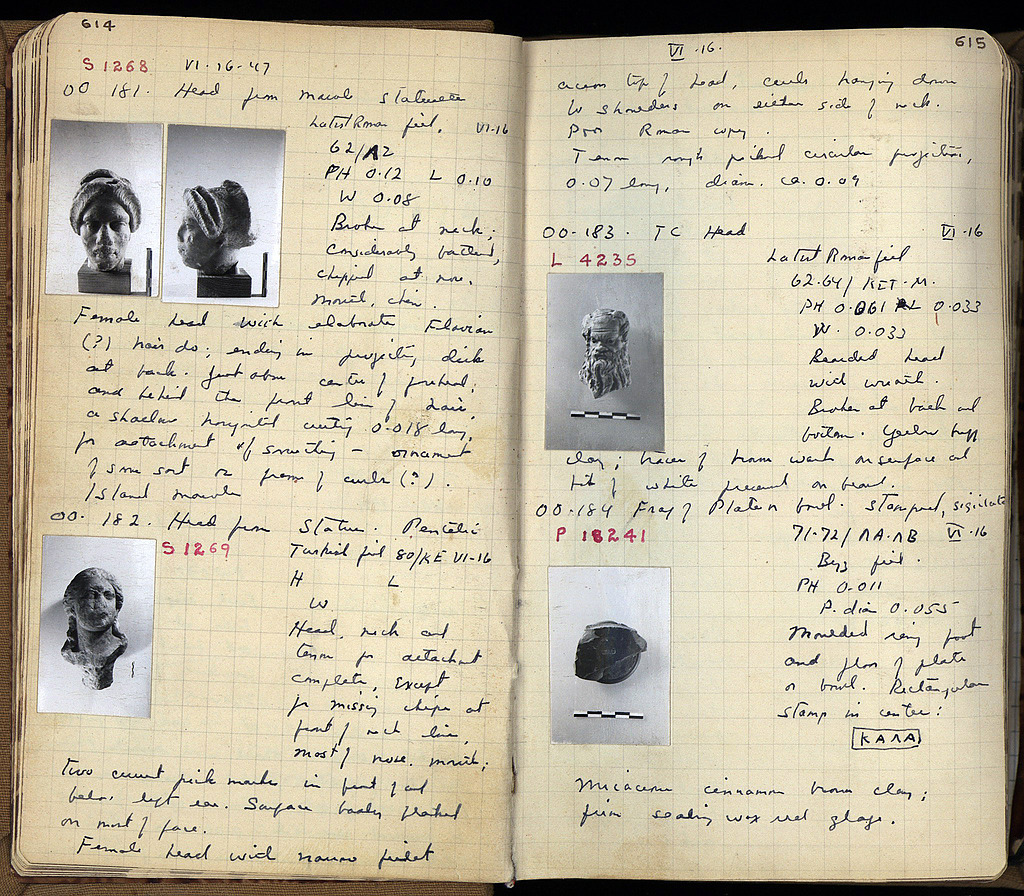 614
S 1268 VI-16-47
OO 181. Head from marble statuette
Latest Roman fill, VI-16
62/Λ2
PH 0.12 L 0.10
W 0.08
Broken at neck;
considerably battered,
chipped at nose,
mouth, chin.
Female head with elaborate Flavian
(?) hair do; ending in projecting disk
at back. Just above center of forehead,
and behind the front line of hair,
a shallow horizontal cutting 0.018 long,
for attachment of something – ornament
of some sort or frame of curls (?).
Island marble
OO- 182. Head from Statue. Pentelic
S 1269
Turkish fill 80/ΚΕ VI-16
H L
W
Head, neck and
tenon for attachment
complete, except
for missing chips at
front of neck line,
most of nose, mouth;
two current pick marks in front of and
below left ear. Surface badly flaked
on most of face.
Female head with narrow fillet
VI-16.
615
across top of head, curls hanging down
to shoulders on either side of neck.
Poor Roman copy.
Tenon rough picked circular projection,
0.07 long, diam. ca. 0.09
OO-183. TC Head VI-16
L 4235
Latest Roman fill
62-64/ ΚΣΤ-Μ.
PH 0.061 L 0.033
W. 0.033
Bearded head
with wreath.
Broken at back and
bottom. Yellow buff
clay; traces of brown wash on surface and
bit of white preserved on beard.
OO-184 Frag of Plate or bowl. Stamped, sigillate
P 18241
71-72/ΛΑ-ΛΒ VI-16
Byz fill.
PH 0.011
P. diam 0.055
Moulded ring foot
and floor of plate
or bowl. Rectangular
stamp in center:
ΚΑΛΑ
Micaceous cinnamon brown clay;
firm sealing wax red glaze.